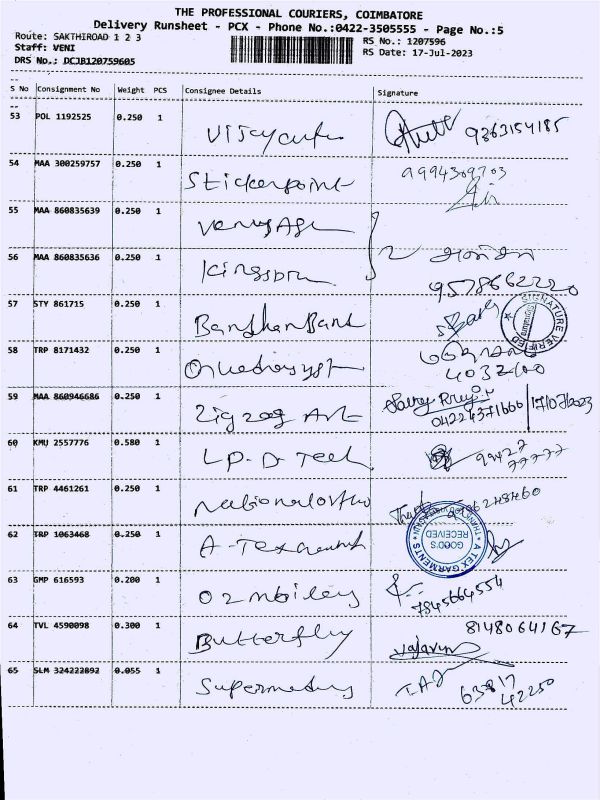 THE PROFESSIONAL COURIERS, COIMBATORE
Delivery Runsheet - PCX - Phone No.:0422-3505555 - Page No.:5
Route: SAKTHIROAD 1 2 3
RS No.: 1207596
Staff: VENI
RS Date: 17-Jul-2023
DRS No.: DCJB120759605
S No Consignment No Weight PCS Consignee Details Signature
53 POL 1192525 0.250 1 9363154185
54 MAA 300259757 0.250 1 Stickerpoint
55 MAA 860835639 0.250 1
56 MAA 860835636 0.250 1 9578662220
57 STY 861715 0.250 1 BandhanBank
SIGNATURE VERIFIED
58 TRP 8171432 0.250 1
59 MAA 860946686 0.250 1 Zigzag Art 04224371600 17/07/2023
60 KMU 2557776 0.580 1 LP-D Tech 99427 77777
61 TRP 4461261 0.250 1
62 TRP 1063468 0.250 1 A-Tex
A TEX GARMENTS
GOODS RECEIVED
63 GMP 616593 0.200 1 7845664554
64 TVL 4590098 0.300 1 Butterfly 8148064167
65 SLM 324222892 0.055 1 63817 42250